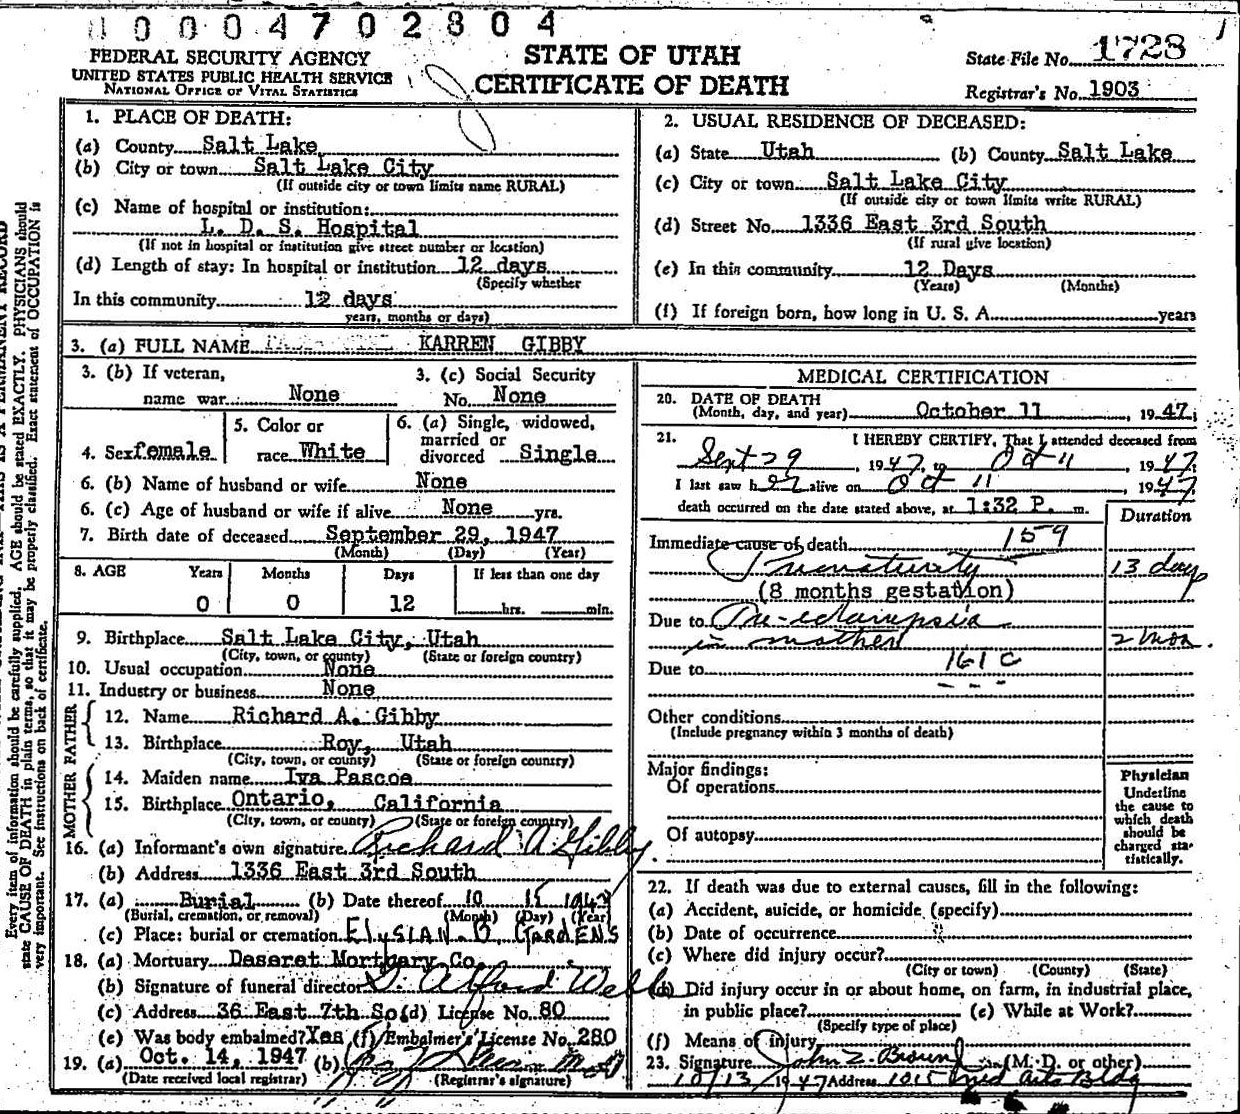 0004702804
FEDERAL SECURITY AGENCY
UNITED STATES PUBLIC HEALTH SERVICE
NATIONAL OFFICE OF VITAL STATISTICS
STATE OF UTAH
CERTIFICATE OF DEATH
State File No. 1728
Registrar's No. 1903
1. PLACE OF DEATH:
(a) County Salt Lake
(b) City or town Salt Lake City
(If outside city or town limits name RURAL)
(c) Name of hospital or institution:
L. D. S. Hospital
(If not in hospital or institution give street number or location)
(d) Length of stay: In hospital or institution 12 days
(Specify whether
In this community 12 days
years, months or days)
2. USUAL RESIDENCE OF DECEASED:
(a) State Utah (b) County Salt Lake
(c) City or town Salt Lake City
(If outside city or town limits write RURAL)
(d) Street No. 1336 East 3rd South
(If rural give location)
(e) In this community 12 Days
(Years) (Months)
(f) If foreign born, how long in U. S. A. years
3. (a) FULL NAME KARREN GIBBY
3. (b) If veteran, name war None
3. (c) Social Security No. None
4. Sex female
5. Color or race White
6. (a) Single, widowed, married or divorced Single
6. (b) Name of husband or wife None
6. (c) Age of husband or wife if alive None yrs.
7. Birth date of deceased September 29, 1947
(Month) (Day) (Year)
8. AGE Years Months Days If less than one day
0 0 12 hrs. min.
9. Birthplace Salt Lake City, Utah
(City, town, or county) (State or foreign country)
10. Usual occupation None
11. Industry or business None
FATHER
12. Name Richard A. Gibby
13. Birthplace Roy, Utah
(City, town, or county) (State or foreign country)
MOTHER
14. Maiden name Iva Pascoe
15. Birthplace Ontario, California
(City, town, or county) (State or foreign country)
16. (a) Informant's own signature Richard A Gibby
(b) Address 1336 East 3rd South
17. (a) Burial (b) Date thereof 10 15 1947
(Burial, cremation, or removal) (Month) (Day) (Year)
(c) Place: burial or cremation ELYSIAN B. GARDENS
18. (a) Mortuary Deseret Mortuary Co.
(b) Signature of funeral director D. Alford Wells
(c) Address 36 East 7th So (d) License No. 80
(e) Was body embalmed? Yes (f) Embalmer's License No. 280
19. (a) Oct. 14, 1947 (b)
(Date received local registrar) (Registrar's signature)
MEDICAL CERTIFICATION
20. DATE OF DEATH
(Month, day, and year) October 11, 1947;
21. I HEREBY CERTIFY, That I attended deceased from
Sept 29, 1947, to Oct 11, 1947.
I last saw her alive on Oct 11, 1947
death occurred on the date stated above, at 1:32 P. m.
Duration
Immediate cause of death 159
Prematurity 13 days
(8 months gestation)
Due to Pre-eclampsia
in mother 2 mos.
Due to 161 c
Other conditions
(Include pregnancy within 3 months of death)
Major findings:
Of operations
Of autopsy
Physician
Underline
the cause to
which death
should be
charged sta-
tistically.
22. If death was due to external causes, fill in the following:
(a) Accident, suicide, or homicide (specify)
(b) Date of occurrence
(c) Where did injury occur?
(City or town) (County) (State)
(d) Did injury occur in or about home, on farm, in industrial place,
in public place? (e) While at Work?
(Specify type of place)
(f) Means of injury
23. Signature John Z. Brown (M. D. or other)
10/13/1947 Address 1015 Med Arts Bldg
Every item of information should be carefully supplied. AGE should be stated EXACTLY. PHYSICIANS should
state CAUSE OF DEATH in plain terms, so that it may be properly classified. Exact statement of OCCUPATION is
very important. See instructions on back of certificate.